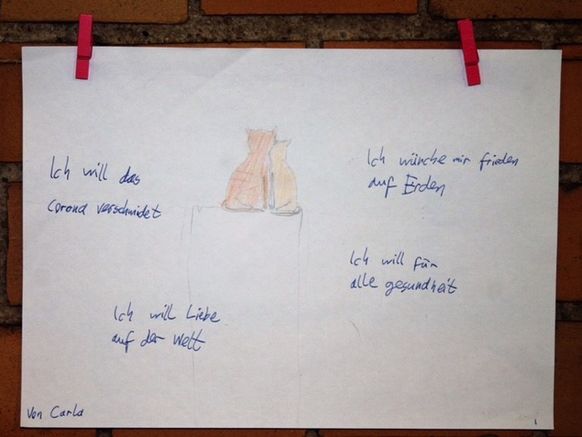 Ich will das
corona verschwidet
Ich wünche mir frieden
auf Erden
Ich will für
alle gesundheit
Ich will Liebe
auf der Welt
Von Carla